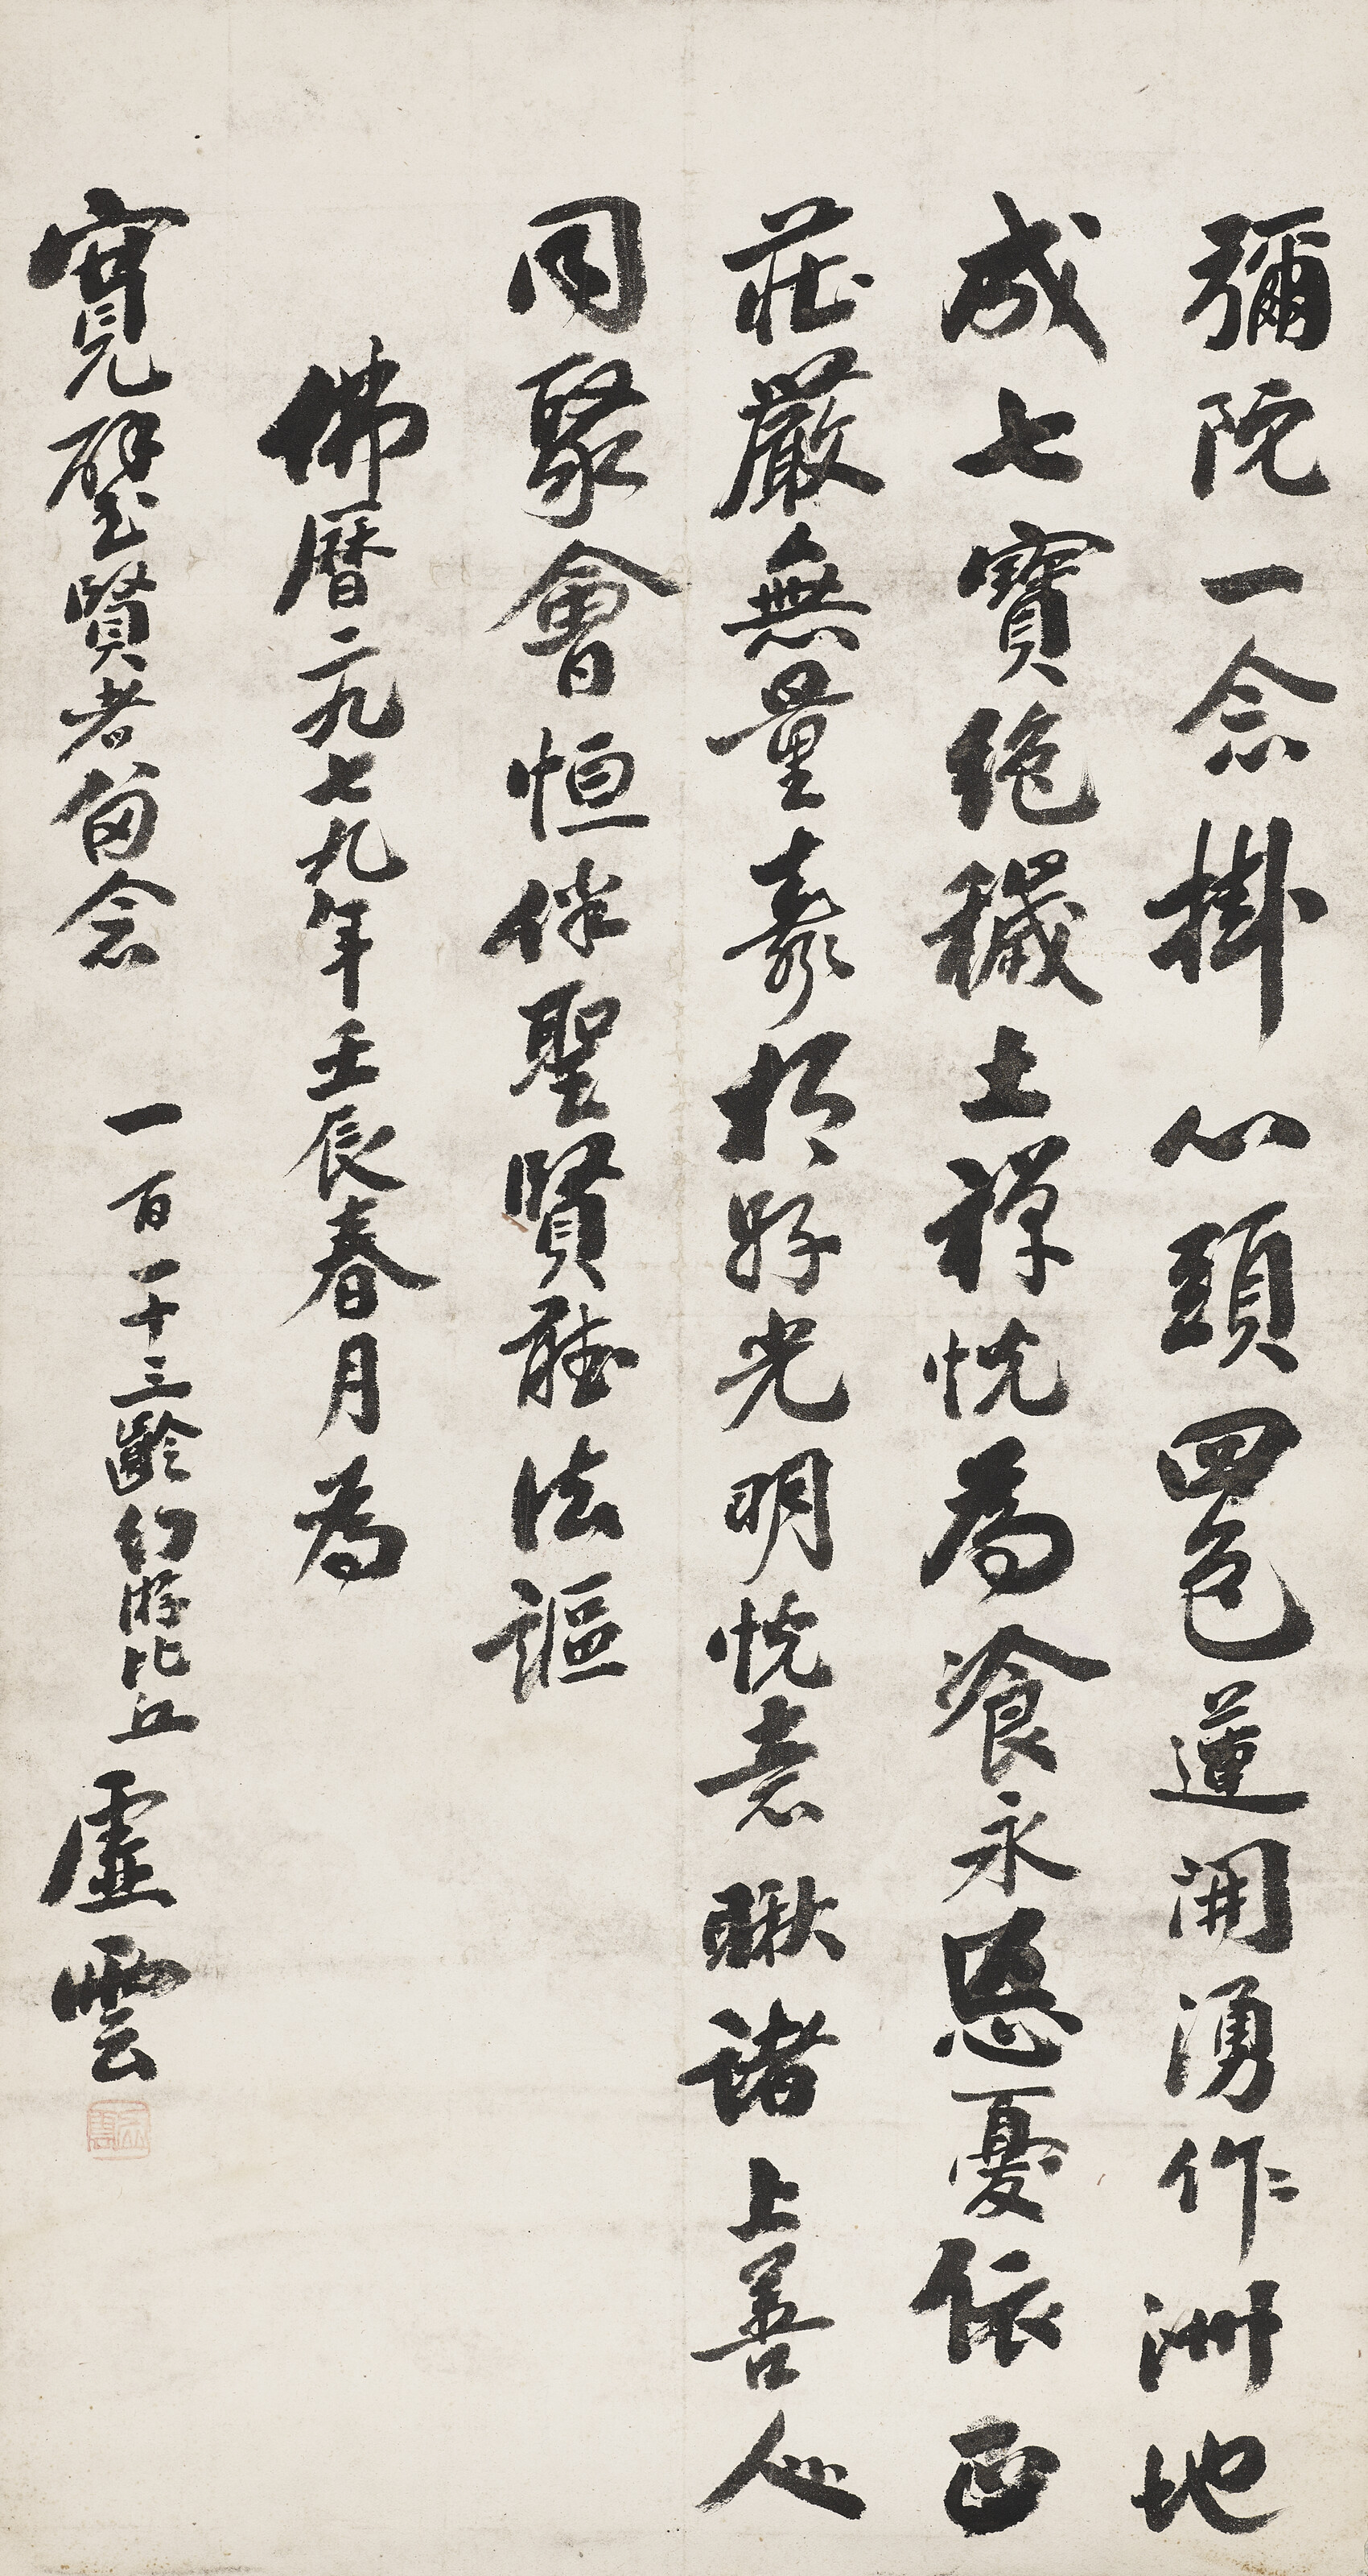 彌陀一念掛心頭四色蓮開湧作洲地
成七寶絕穢土禪悅為飡永恩憂依正
莊嚴無量壽相好光明悅意瞅諸上善人
同聚會恒伴聖賢聽法謳
佛曆二九七九年壬辰春月為
寬璧賢者留念 一百一十三齡幻游比丘虛雲